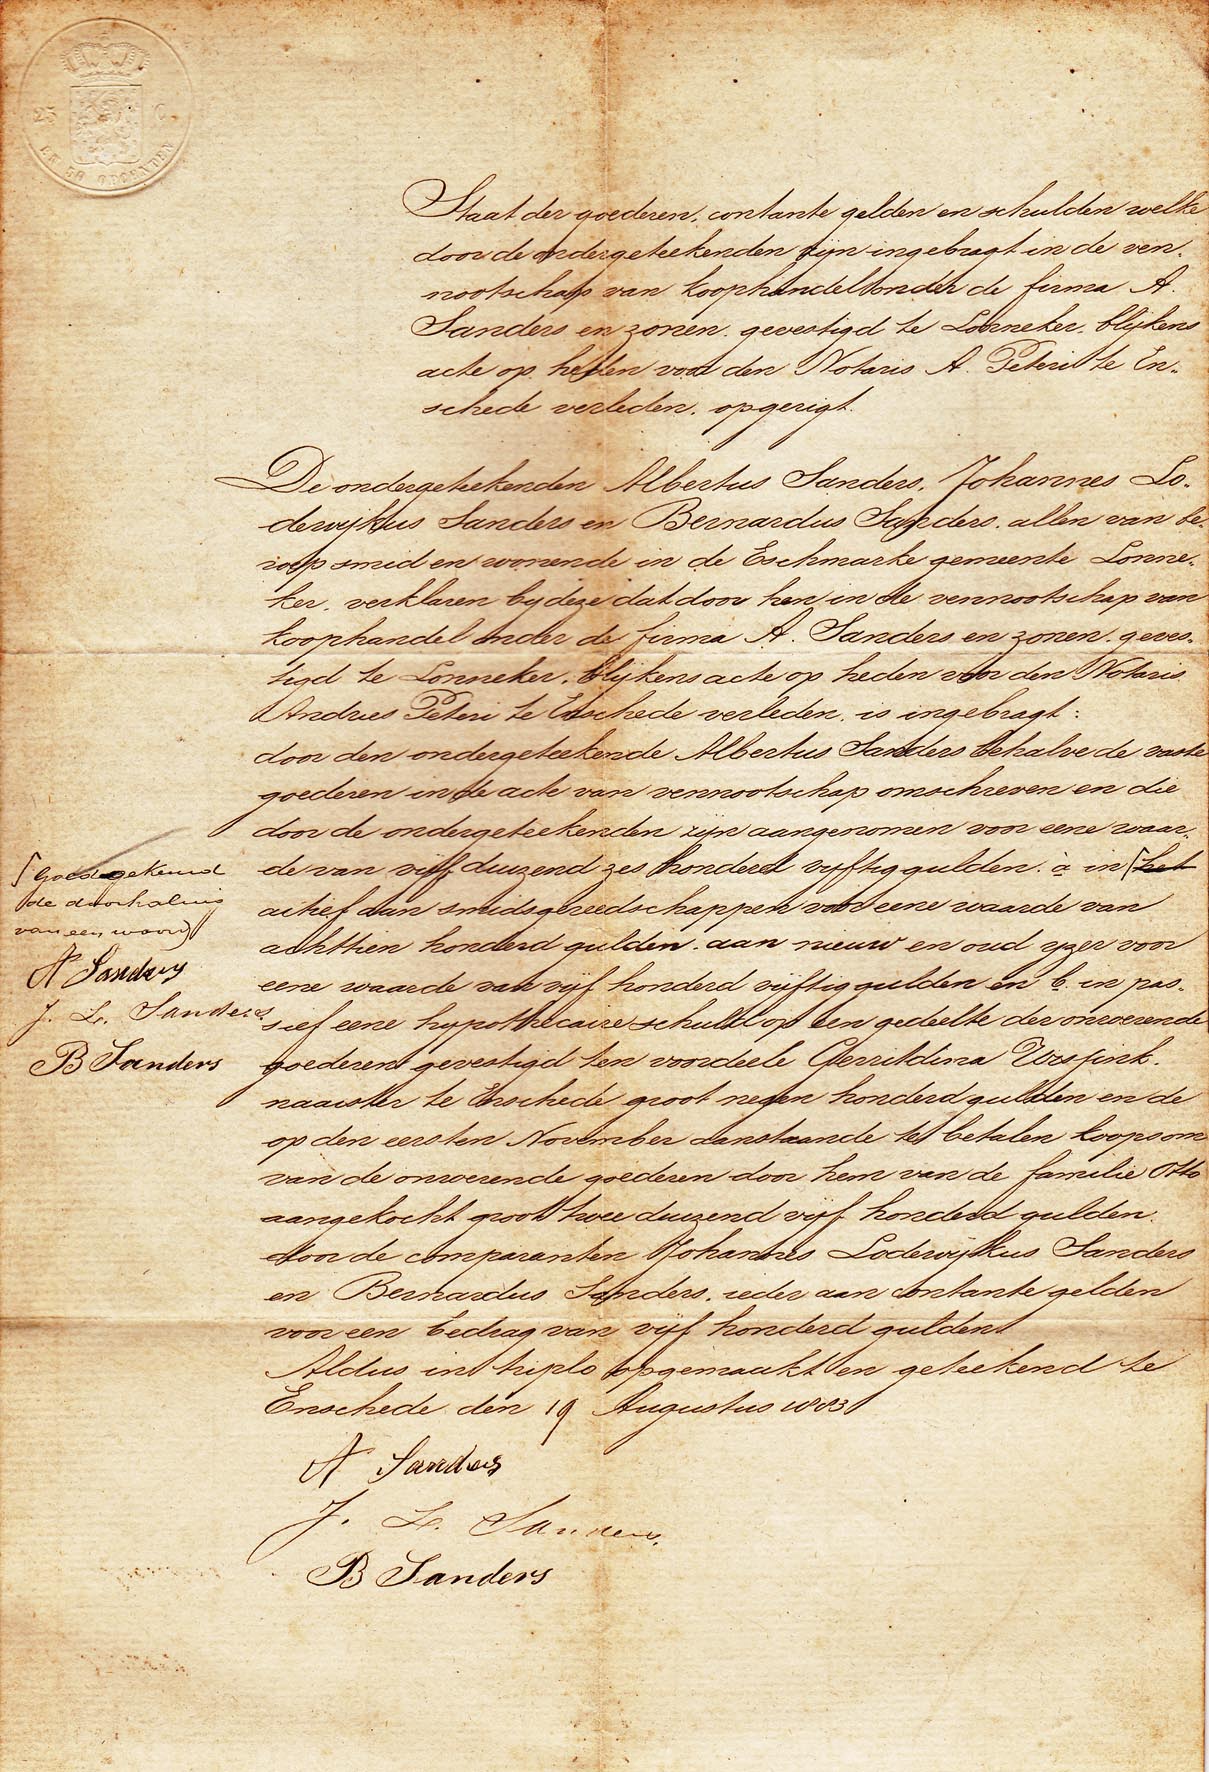 25 C.
EN 50 OPCENTEN
Staat der goederen, contante gelden en schulden welke
door de ondergeteekenden zijn ingebragt in de ven-
nootschap van koophandel onder de firma A.
Sanders en zonen, gevestigd te Lonneker, blijkens
acte op heden voor den Notaris A. Peteri te En-
schede verleden, opgerigt.
De ondergeteekenden Albertus Sanders, Johannes Lo-
dewijkus Sanders en Bernardus Sanders, allen van be-
roep smid en wonende in de Eschmarke gemeente Lonne-
ker, verklaren bij deze dat door hen in de vennootschap van
koophandel onder de firma A. Sanders en zonen, geves-
tigd te Lonneker, blijkens acte op heden voor den Notaris
Andries Peteri te Enschede verleden, is ingebragt:
door den ondergeteekende Albertus Sanders behalve de vaste
goederen in de acte van vennootschap omschreven en die
door de ondergeteekenden zijn aangenomen voor eene waar-
de van vijf duizend zes honderd vijftig gulden. a in het
actief aan smidsgereedschappen voor eene waarde van
achttien honderd gulden, aan nieuw en oud yzer voor
eene waarde van vijf honderd vijftig gulden en b. in pas-
sief eene hypothecaire schuld op een gedeelte der onroerende
goederen gevestigd ten voordeele Gerritdina
naaister te Enschede groot negen honderd gulden en de
op den eersten November aanstaande te betalen koopsom
van de onroerende goederen door hem van de familie Otto
aangekocht groot twee duizend vijf honderd gulden.
door de comparanten Johannes Lodewijkus Sanders
en Bernardus Sanders, ieder aan contante gelden
voor een bedrag van vijf honderd gulden
Aldus in triplo opgemaakt en geteekend te
Enschede den 19 Augustus 1883
A Sanders
J. L. Sanders
B Sanders
Goedgekeurd
de doorhaling
van een woord
A Sanders
J. L. Sanders
B Sanders